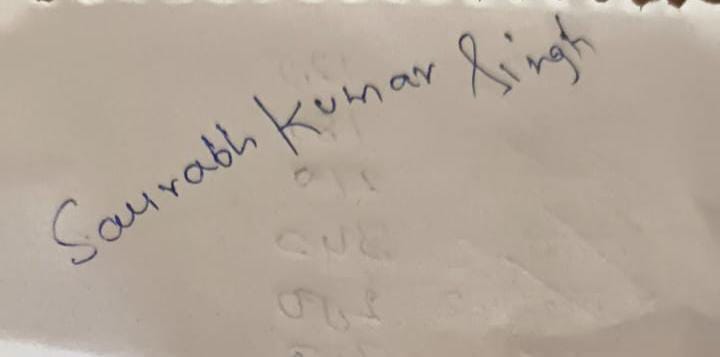 Saurabh Kumar Singh